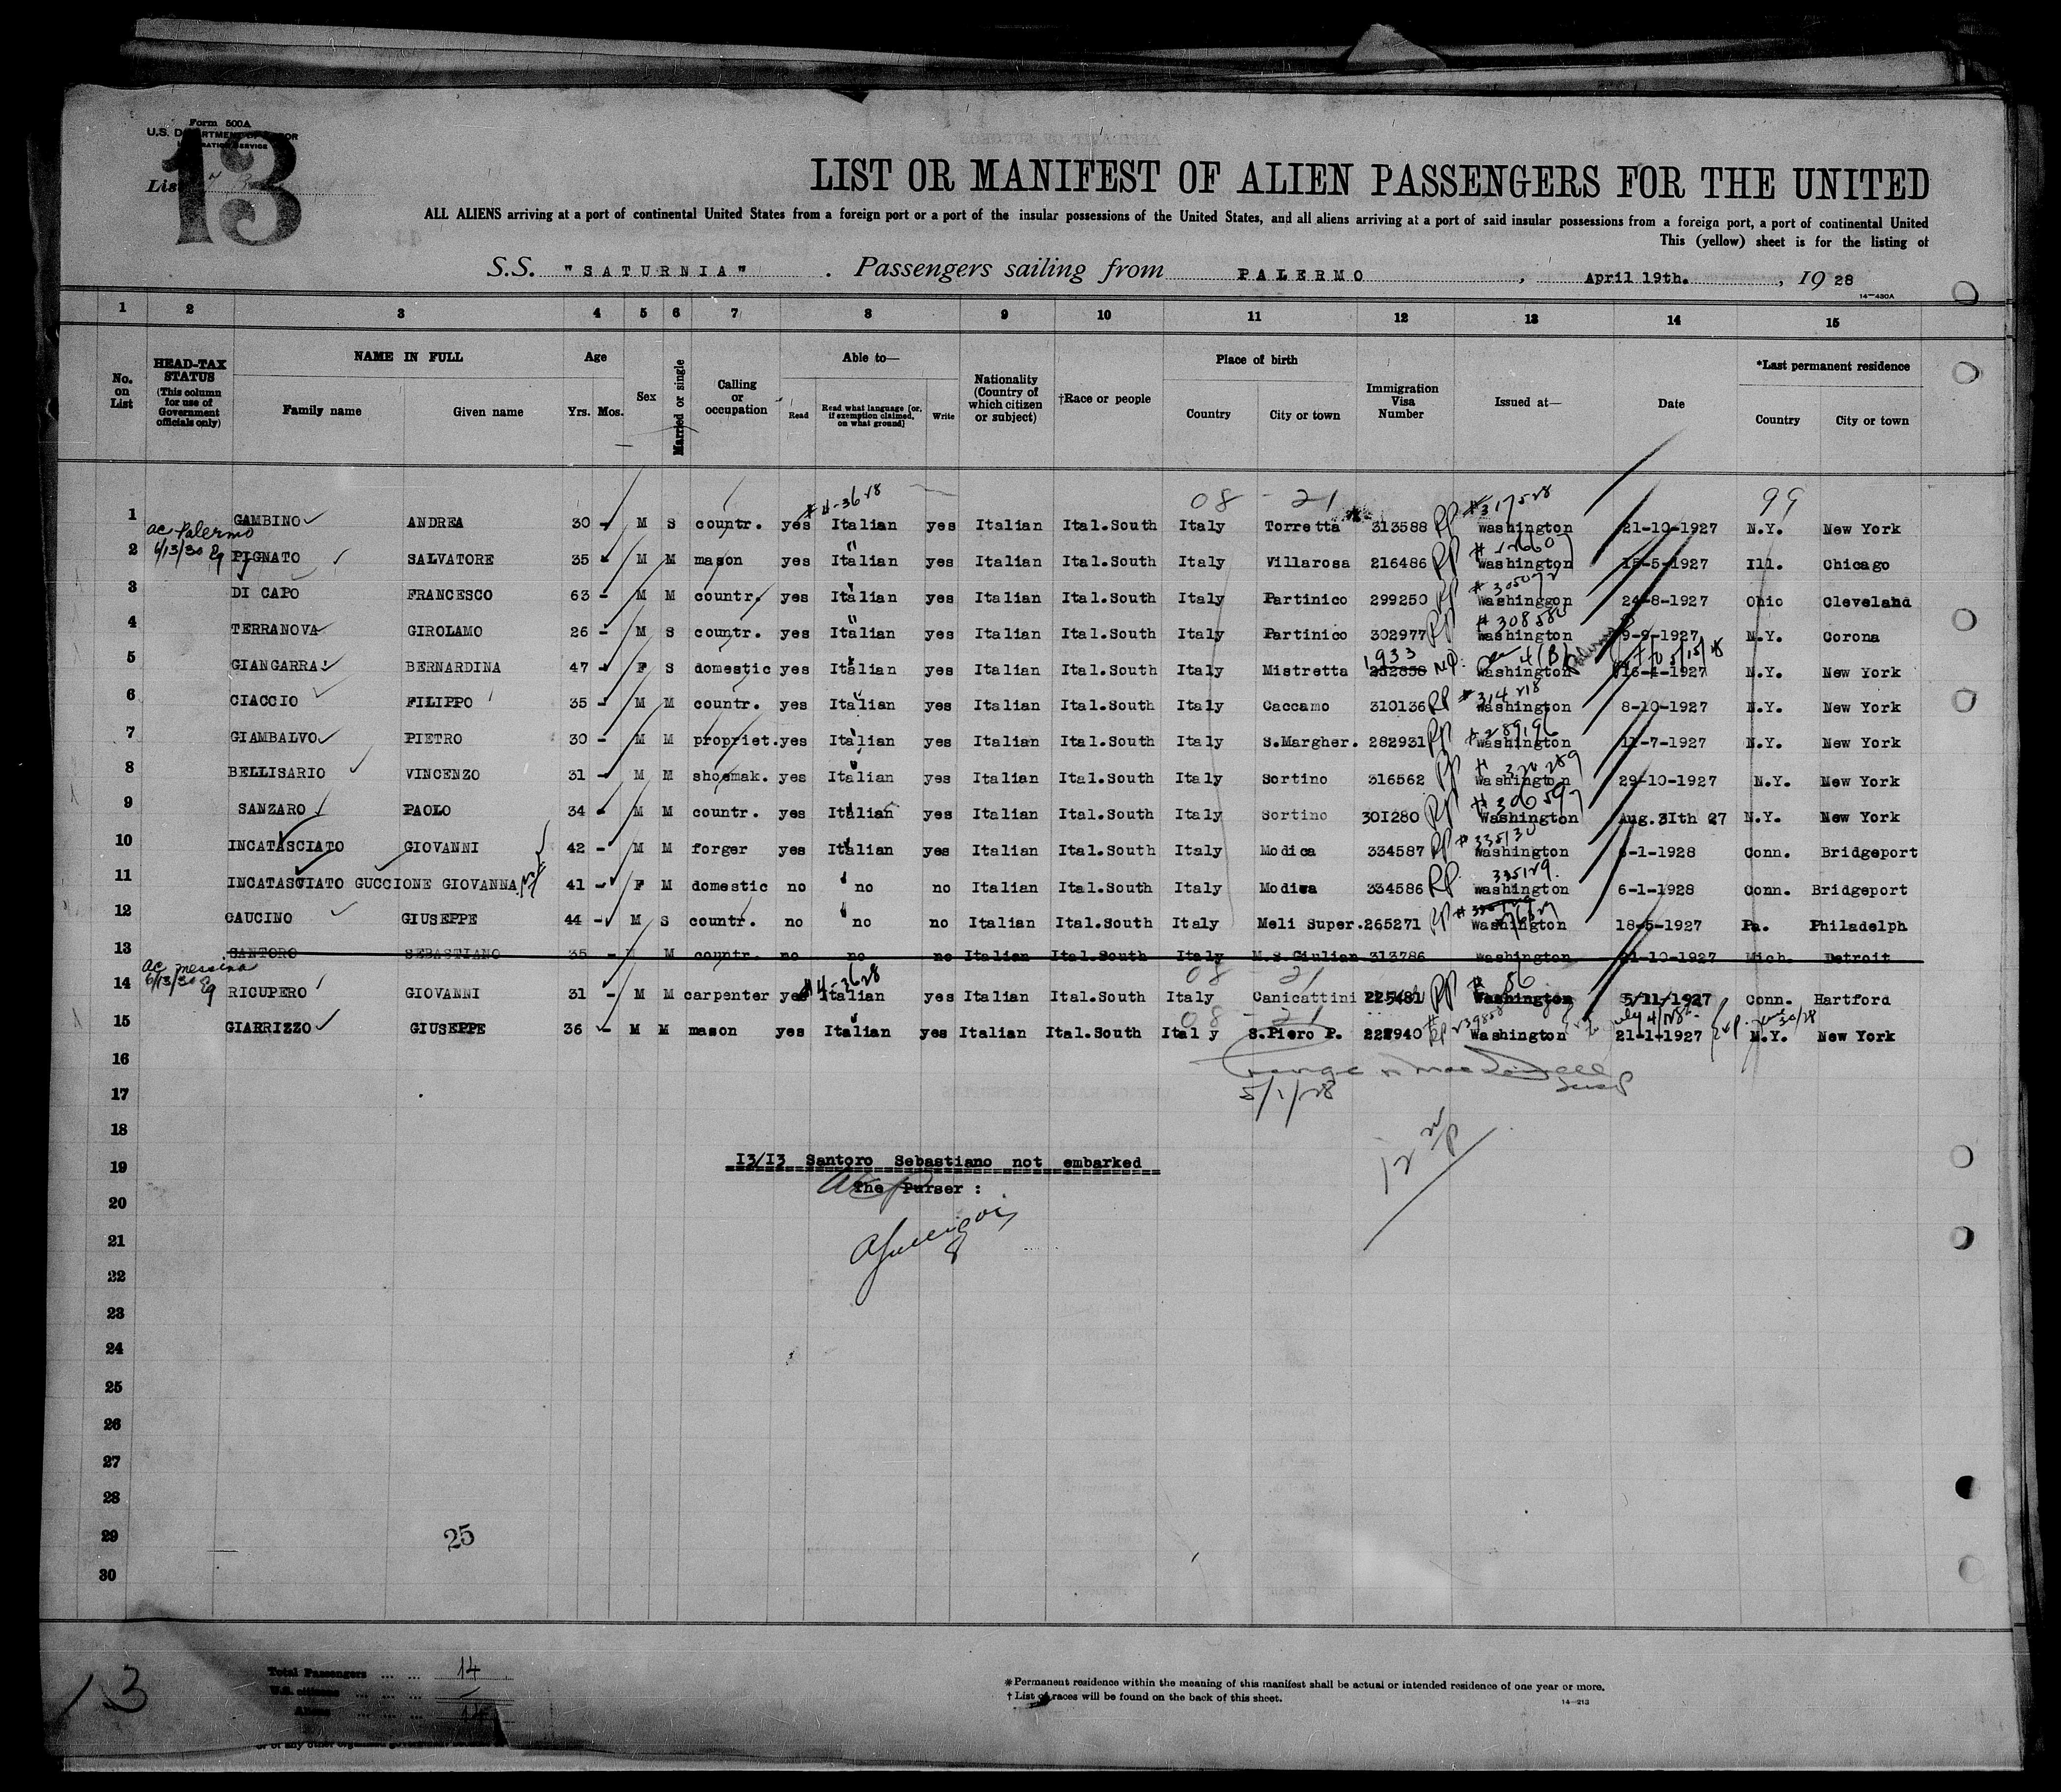 Form 500A
U.S. DEPARTMENT OF LABOR
IMMIGRATION SERVICE
13
List
LIST OR MANIFEST OF ALIEN PASSENGERS FOR THE UNITED
ALL ALIENS arriving at a port of continental United States from a foreign port or a port of the insular possessions of the United States, and all aliens arriving at a port of said insular possessions from a foreign port, a port of continental United
This (yellow) sheet is for the listing of
S.S. "SATURNIA" . Passengers sailing from PALERMO , April 19th. , 19 28
14—430A
1 2 3 4 5 6 7 8 9 10 11 12 13 14 15
No. on List
HEAD-TAX STATUS (This column for use of Government officials only)
NAME IN FULL
Family name Given name
Age
Yrs. Mos.
Sex
Married or single
Calling or occupation
Able to—
Read Read what language [or, if exemption claimed, on what ground] Write
Nationality (Country of which citizen or subject)
†Race or people
Place of birth
Country City or town
Immigration Visa Number
Issued at—
Date
*Last permanent residence
Country City or town
08 - 21 99
1 GAMBINO ANDREA 30 - M S countr. yes Italian yes Italian Ital.South Italy Torretta 313588 RP Washington 21-10-1927 N.Y. New York
ac Palermo
6/13/30
2 PIGNATO SALVATORE 35 M M mason yes Italian yes Italian Ital.South Italy Villarosa 216486 RP Washington 15-5-1927 Ill. Chicago
3 DI CAPO FRANCESCO 63 - M M countr. yes Italian yes Italian Ital.South Italy Partinico 299250 RP Washinggon 24-8-1927 Ohio Cleveland
# 308580
4 TERRANOVA GIROLAMO 26 - M S countr. yes Italian yes Italian Ital.South Italy Partinico 302977 RP Washington 9-9-1927 N.Y. Corona
1933
5 GIANGARRA BERNARDINA 47 - F S domestic yes Italian yes Italian Ital.South Italy Mistretta 232858 Washington 16-4-1927 N.Y. New York
6 CIACCIO FILIPPO 35 - M M countr. yes Italian yes Italian Ital.South Italy Caccamo 310136 RP Washington 8-10-1927 N.Y. New York
7 GIAMBALVO PIETRO 30 - M M propriet. yes Italian yes Italian Ital.South Italy S.Margher. 282931 RP Washington 11-7-1927 N.Y. New York
8 BELLISARIO VINCENZO 31 - M M shoemak. yes Italian yes Italian Ital.South Italy Sortino 316562 RP Washington 29-10-1927 N.Y. New York
# 306597
9 SANZARO PAOLO 34 - M M countr. yes Italian yes Italian Ital.South Italy Sortino 301280 RP Washington Aug.3Ith 27 N.Y. New York
# 335130
10 INCATASCIATO GIOVANNI 42 - M M forger yes Italian yes Italian Ital.South Italy Modica 334587 RP Washington 6-1-1928 Conn. Bridgeport
335129
11 INCATASCIATO GUCCIONE GIOVANNA 41 - F M domestic no no no Italian Ital.South Italy Modica 334586 RP Washington 6-1-1928 Conn. Bridgeport
12 CAUCINO GIUSEPPE 44 - M S countr. no no no Italian Ital.South Italy Meli Super. 265271 RP Washington 18-6-1927 Pa. Philadelph
13 SANTORO SEBASTIANO 35 - M countr. no no no Italian Ital.South Italy M.S.Giulian 313786 Washington 21-10-1927 Mich. Detroit
ac messina
6/13/30
08 - 21
14 RICUPERO GIOVANNI 31 - M M carpenter yes Italian yes Italian Ital.South Italy Canicattini 225481 RP Washington 5/11/1927 Conn. Hartford
08 - 21
15 GIARRIZZO GIUSEPPE 36 - M M mason yes Italian yes Italian Ital.South Italy S.Piero P. 228940 RP Washington 21-1-1927 N.Y. New York
16
17
5/1/28
18
19 I3/I3 Santoro Sebastiano not embarked
The Purser :
20
21
22
23
24
25
26
27
28
29
25
30
13
Total Passengers ... ... 14
U.S. citizens ... ... ...
Aliens ... ... ... 14
* Permanent residence within the meaning of this manifest shall be actual or intended residence of one year or more.
† List of races will be found on the back of this sheet.
14—213